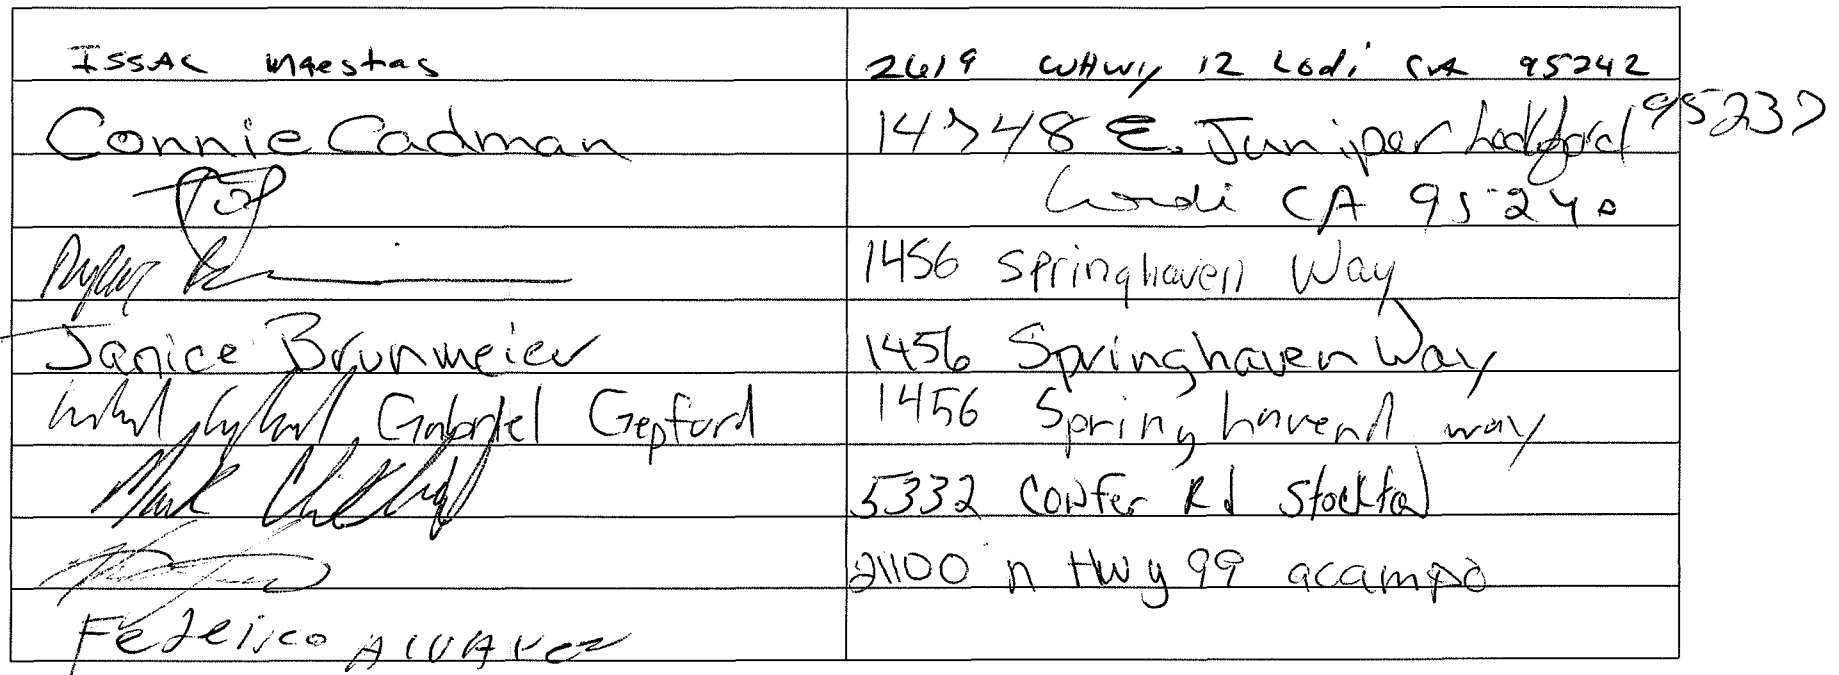 ISSAC Maestas 2619 W HWY 12 Lodi CA 95242
Connie Cadman 14748 E. Juniper Lockford 95237
Lodi CA 95240
1456 Springhaven Way
Janice Brunmeier 1456 Springhaven Way
Gabriel Gepford 1456 Spring haven way
Mark 5332 Confer Rd Stockton
21100 n Hwy 99 acampo
Federico Alvarez